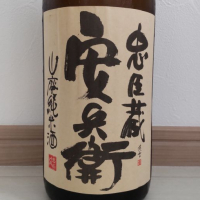 忠臣蔵
安兵衛
山廃純米酒